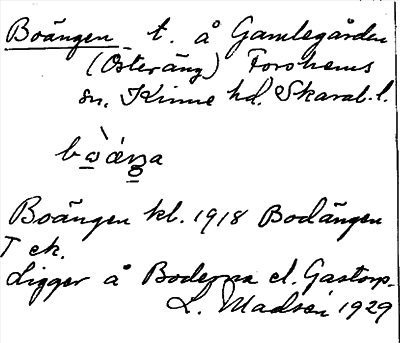 Boängen t. å Gamlegården
(Österäng) Forshems
sn. Kinne hd. Skarab. l.
Boängen kl. 1918 Bodängen
T ek.
Ligger å Boderna el. Gastorp.
L. Madsén 1929